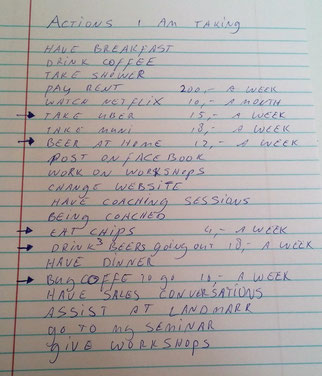 ACTIONS I AM TAKING
HAVE BREAKFAST
DRINK COFFEE
TAKE SHOWER
PAY RENT 200,- A WEEK
WATCH NETFLIX 10,- A MONTH
→ TAKE UBER 15,- A WEEK
TAKE MUNI 18,- A WEEK
→ BEER AT HOME 12,- A WEEK
POST ON FACEBOOK
WORK ON WORKSHOPS
CHANGE WEBSITE
HAVE COACHING SESSIONS
BEING COACHED
→ EAT CHIPS 4,- A WEEK
→ DRINK 3 BEERS going out 18,- A WEEK
HAVE DINNER
→ Buy COFFE To go 10,- A WEEK
HAVE SALES CONVERSATIONS
ASSIST AT LANDMARK
go To my SEMINAR
gIVE WORKSHOPS